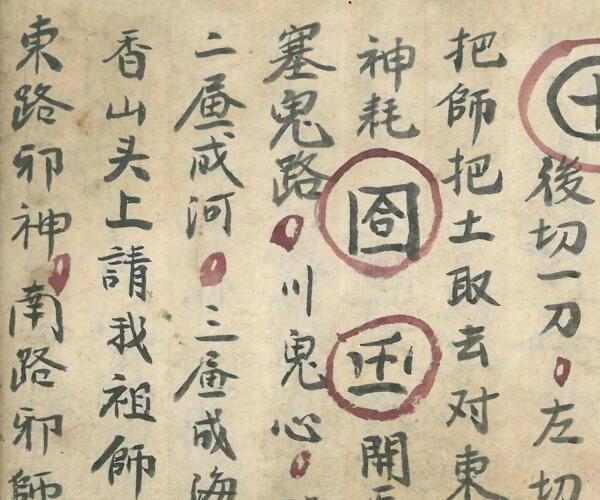 後切一刀左切
把師把土取去对東
神耗合開
塞鬼路川鬼心
二㕑成河三㕑成海
香山头上請我祖師
東路邪神南路邪師